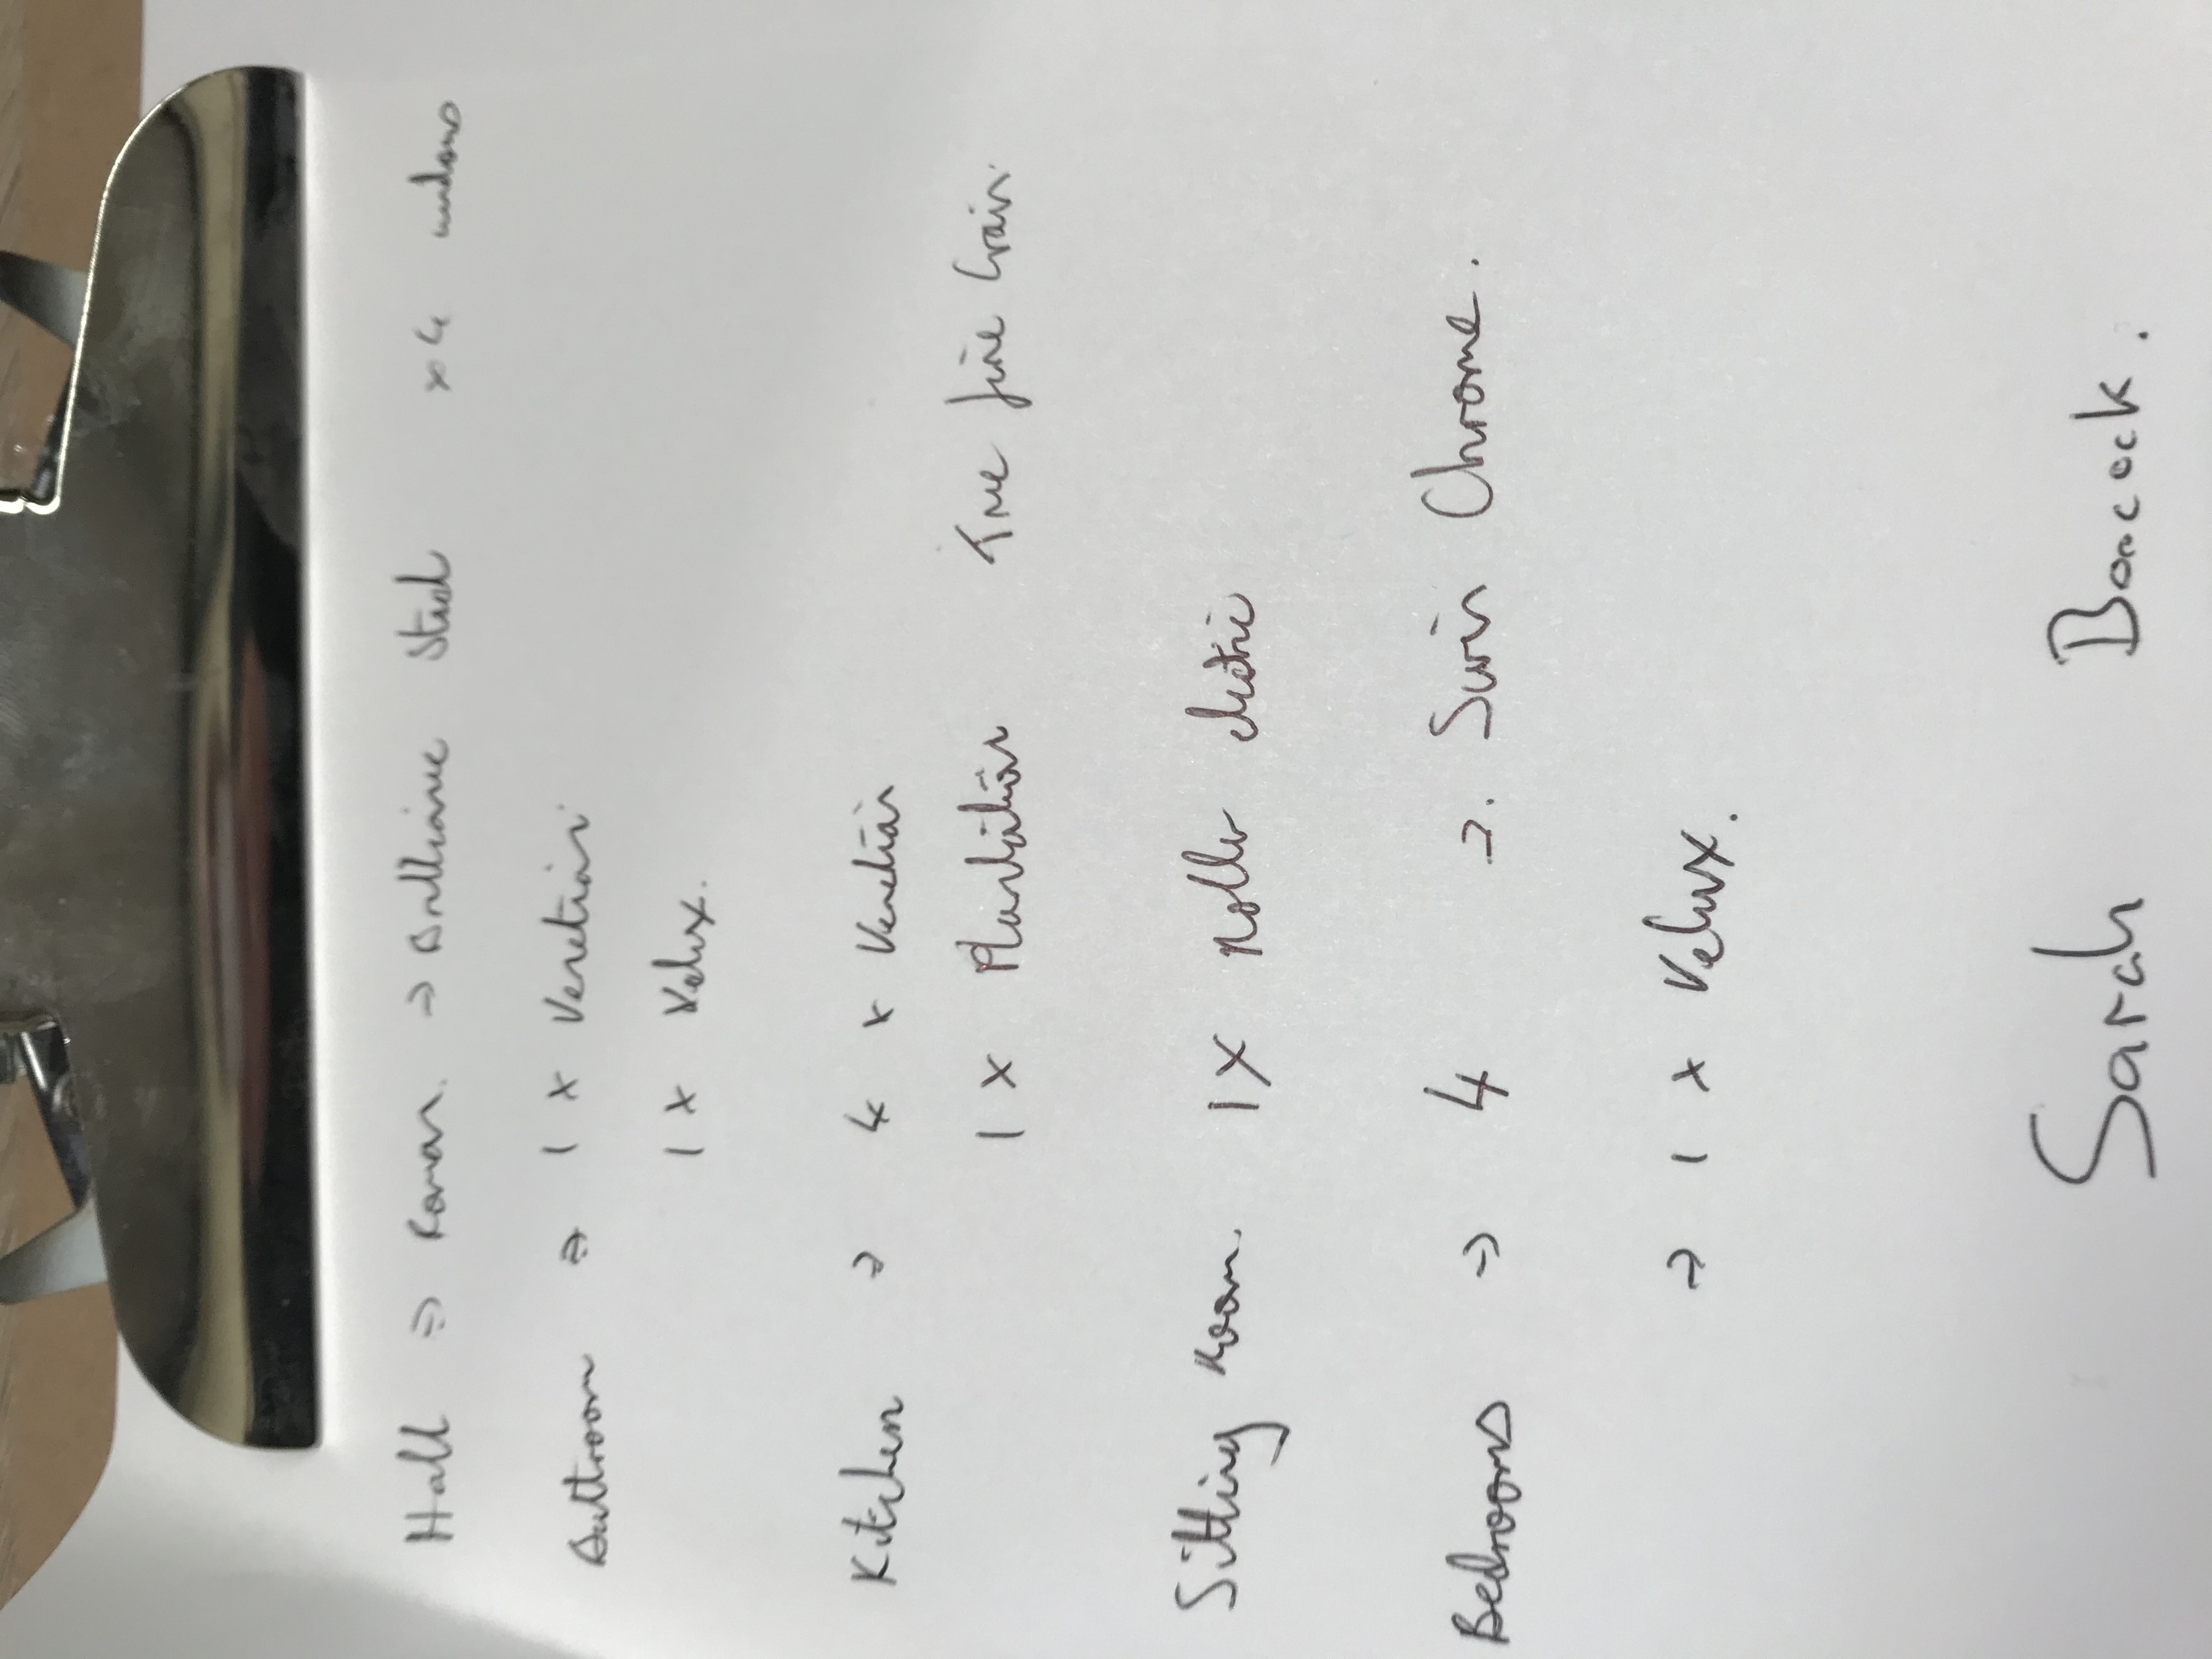 Hall ⇒ Roman. → Brilliance Steel x 4 windows
Bathroom ⇒ 1 x Venetian.
1 x Velux.
Kitchen → 4 x Venetian
1 x Plantation True fine Grain.
Sitting Room. 1 x Roller electric
Bedrooms → 4 →. Swin Chrome.
→ 1 x Velux.
Sarah